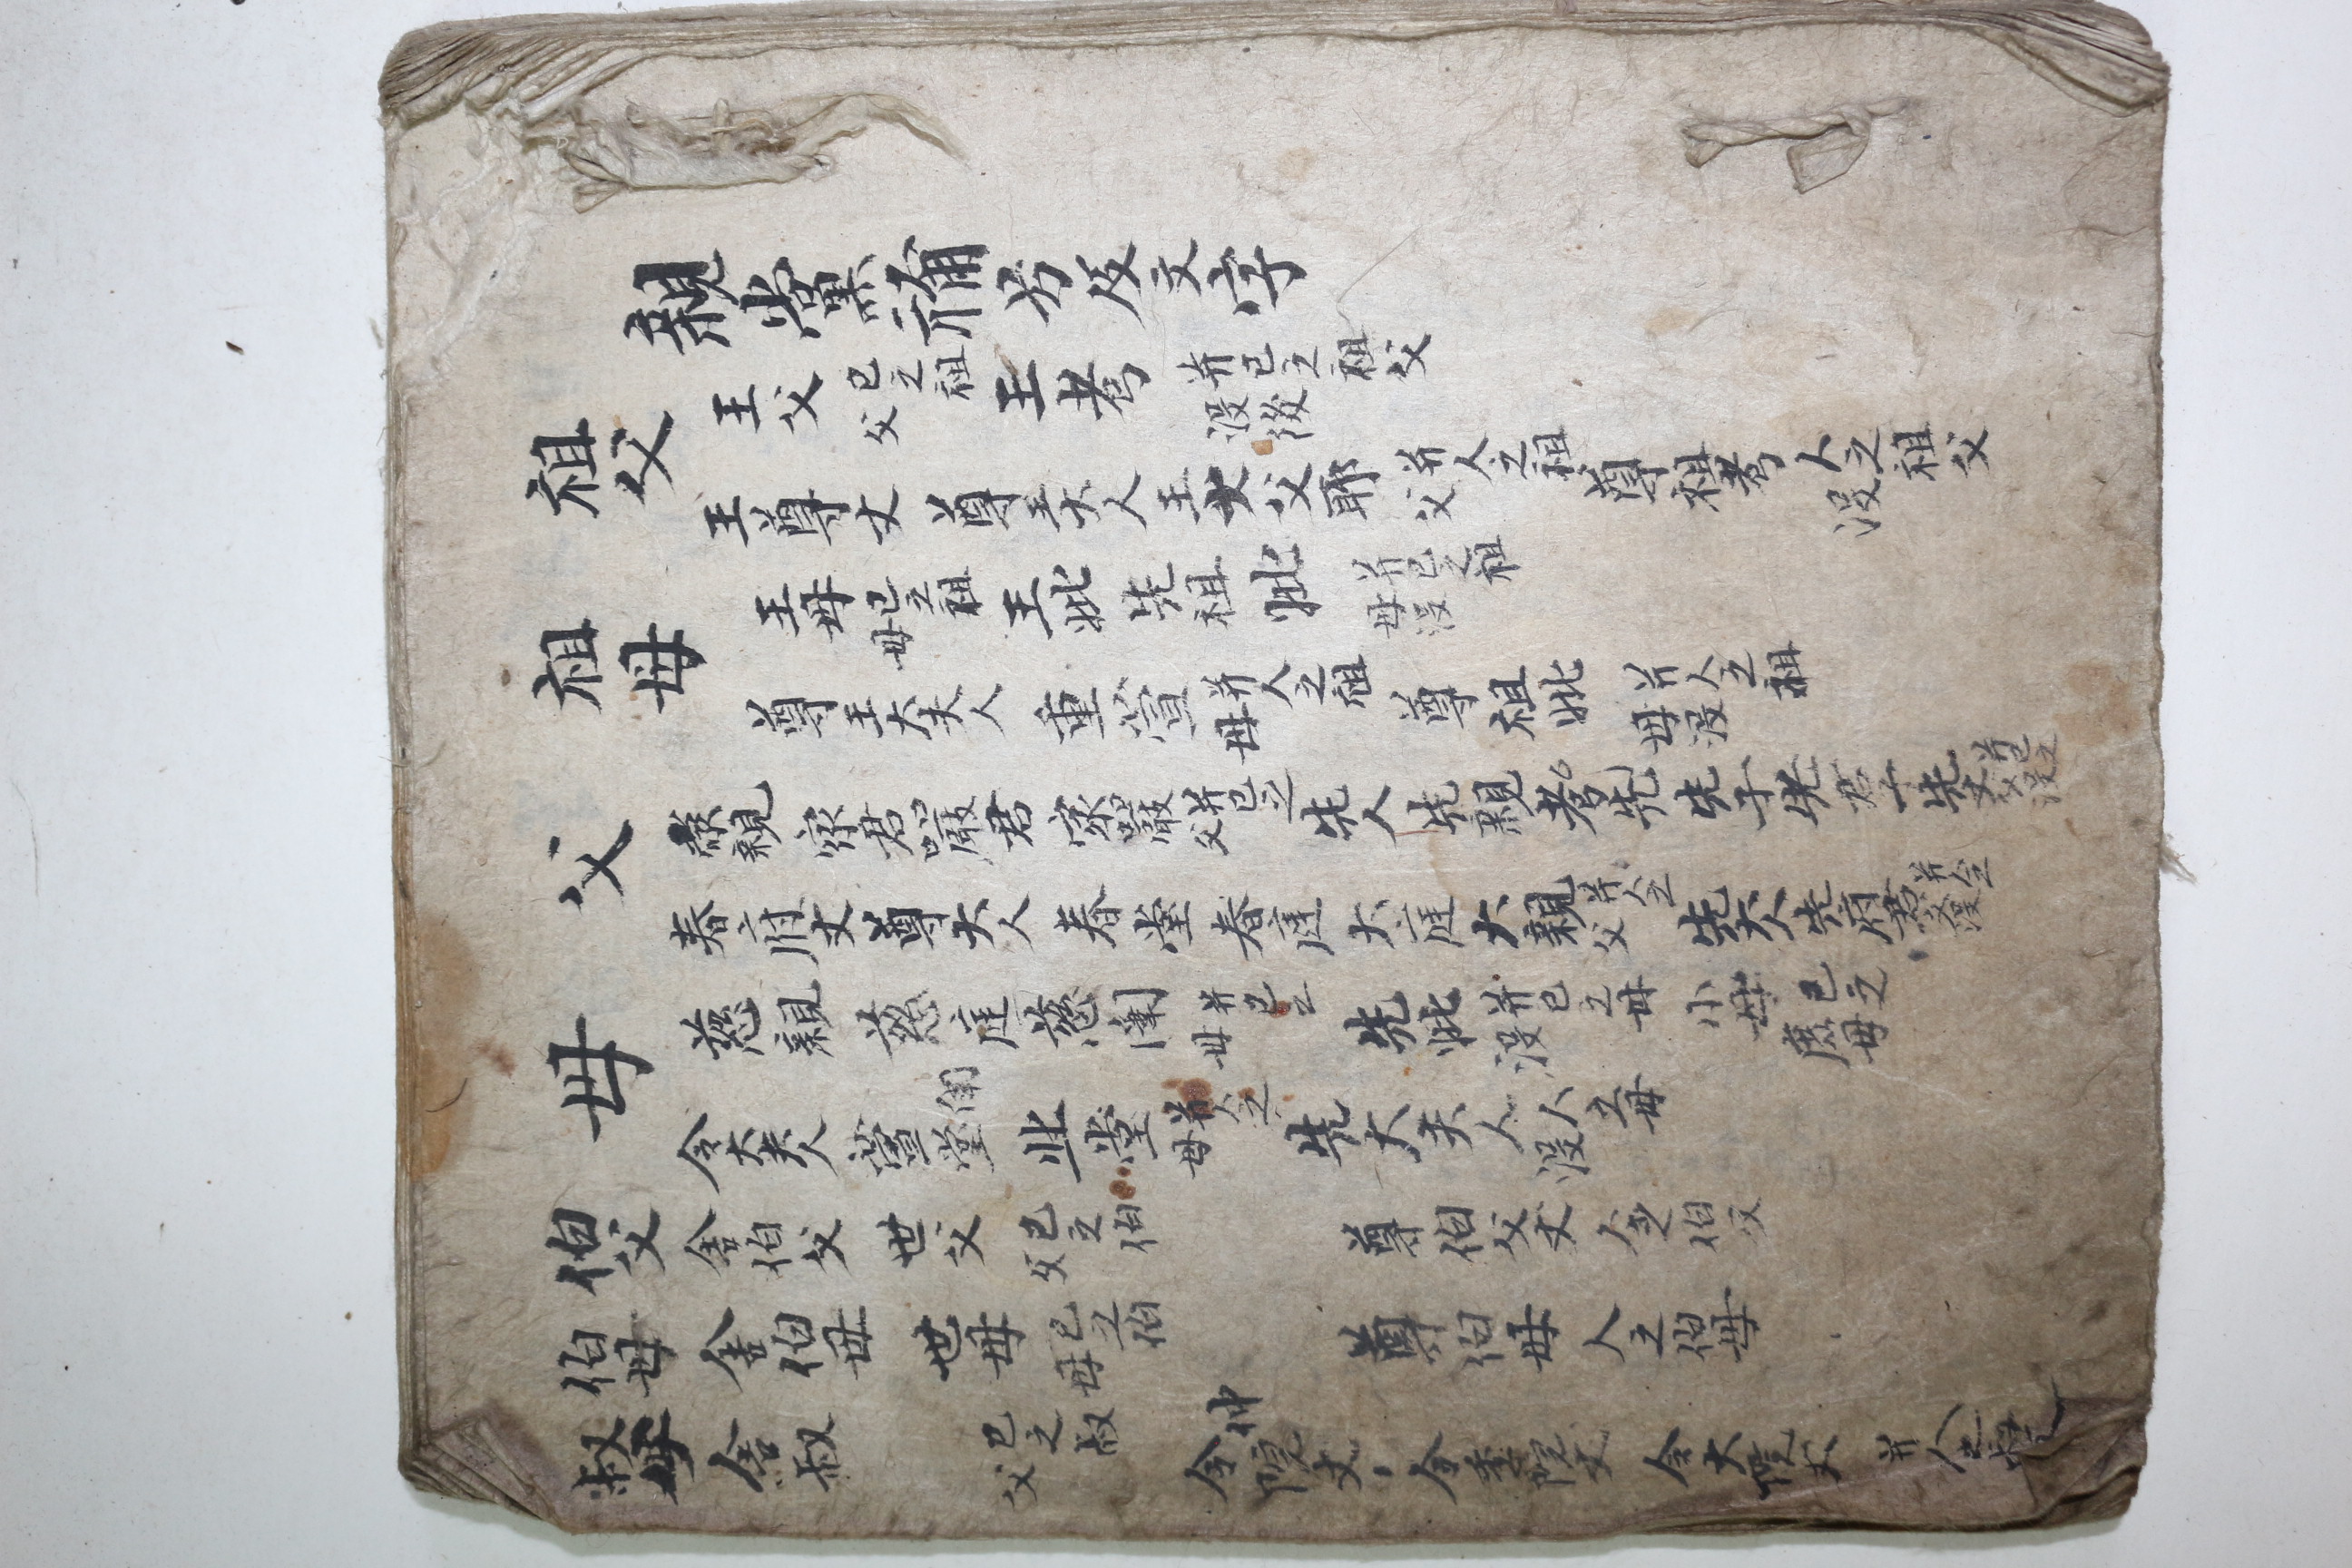 親黨稱号及文字
祖父 王父 己之祖父 王考 并己之祖父沒後
王尊丈 尊王大人 王大父耶 并人之祖父 尊祖考 人之祖父沒
祖母 王母 己之祖母 王妣 先祖妣 并己之祖母沒
尊王大夫人 重萱 并人之祖母 尊祖妣 并人之祖母沒
父 養親 家君 嚴君 家嚴 并己之父 先人 先親 考 先 先子 先君子 先父 并己之父沒
春府丈 尊大人 春堂 春庭 大庭 大親 并人之父 先大人 先府君 并人之父沒
母 慈親 慈庭 慈闈 并己之母 先妣 并己之母沒 小母 己之庶母
令大夫人 萱堂 北堂 并人之母 先大夫人 人之母沒
伯父 舍伯父 世父 己之伯父 尊伯父丈 人之伯父
伯母 舍伯母 世母 己之伯母 尊伯母 人之伯母
叔 舍叔 己之叔父 令仲院丈 令季院丈 令大院丈 并人之